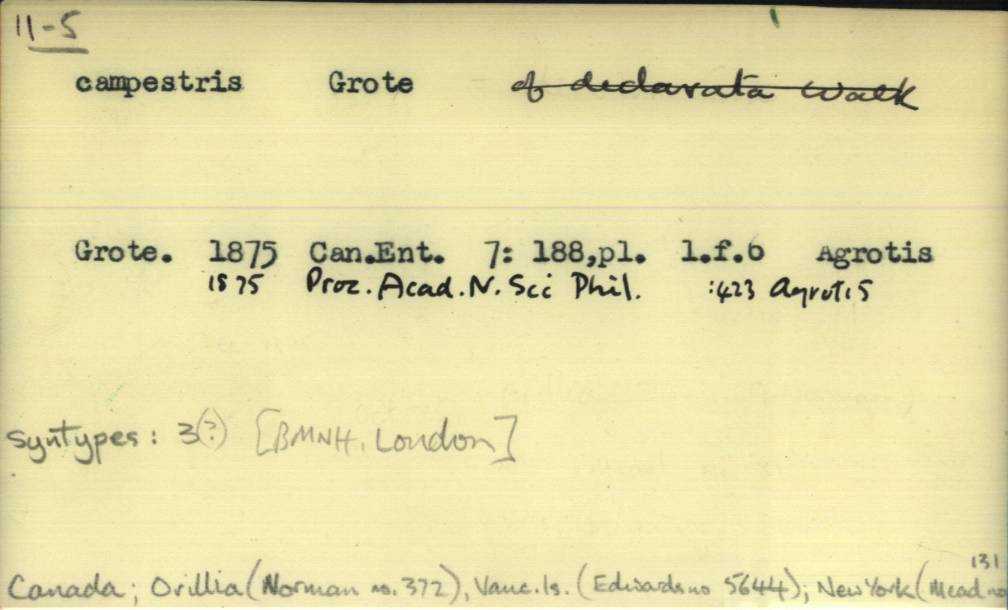 11-5
campestris Grote of declarata Walk
Grote. 1875 Can.Ent. 7: 188,pl. 1.f.6 Agrotis
1875 Proc. Acad. N. Sci Phil. :423 Agrotis
Syntypes: 3(?) [BMNH, London]
Canada; Orillia (Norman no. 372), Vanc. Is. (Edwards no 5644); New York (Mead no 131